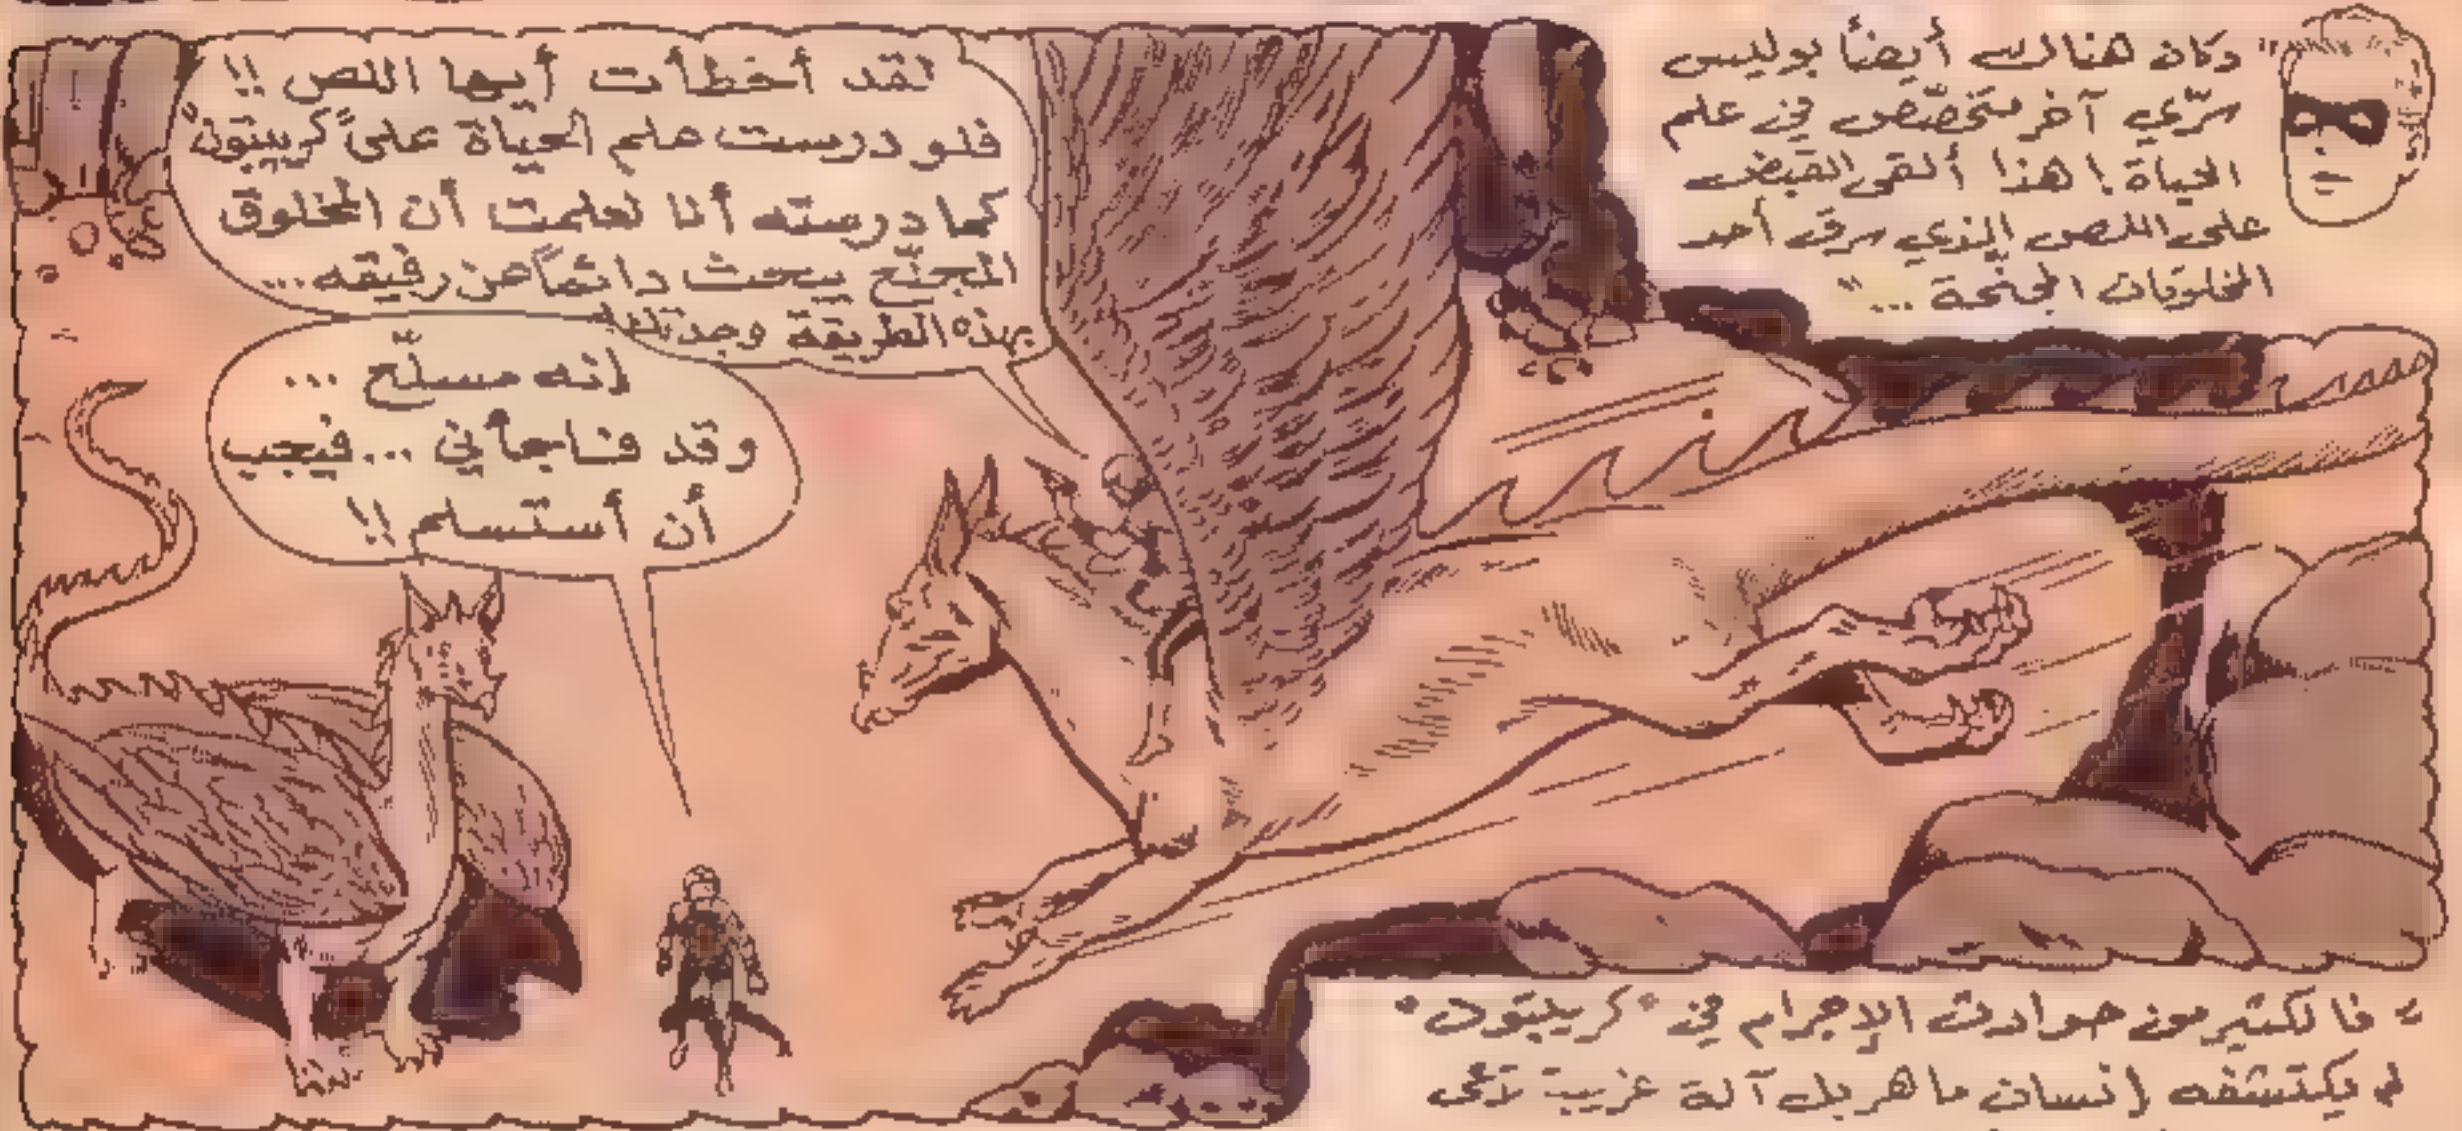 "وكان هنالك أيضاً بوليس
سرّي آخر متخصّص في علم
الحياة! هذا ألقى القبض
على اللص الذي سرق أحد
المخلوقات المجنحة ..."
لقد أخطأت أيها اللص !!
فلو درست علم الحياة على "كريبتون"
كما درسته أنا لعلمت أن المخلوق
المجنّح يبحث دائماً عن رفيقه...
بهذه الطريقة وجدتك!
إنه مسلّح ...
وقد فاجأني ... فيجب
أن أستسلم !!
" فالكثير من حوادث الإجرام في "كريبتون"
لم يكتشفه إنسان ماهر بل آلة غريبة تدعى